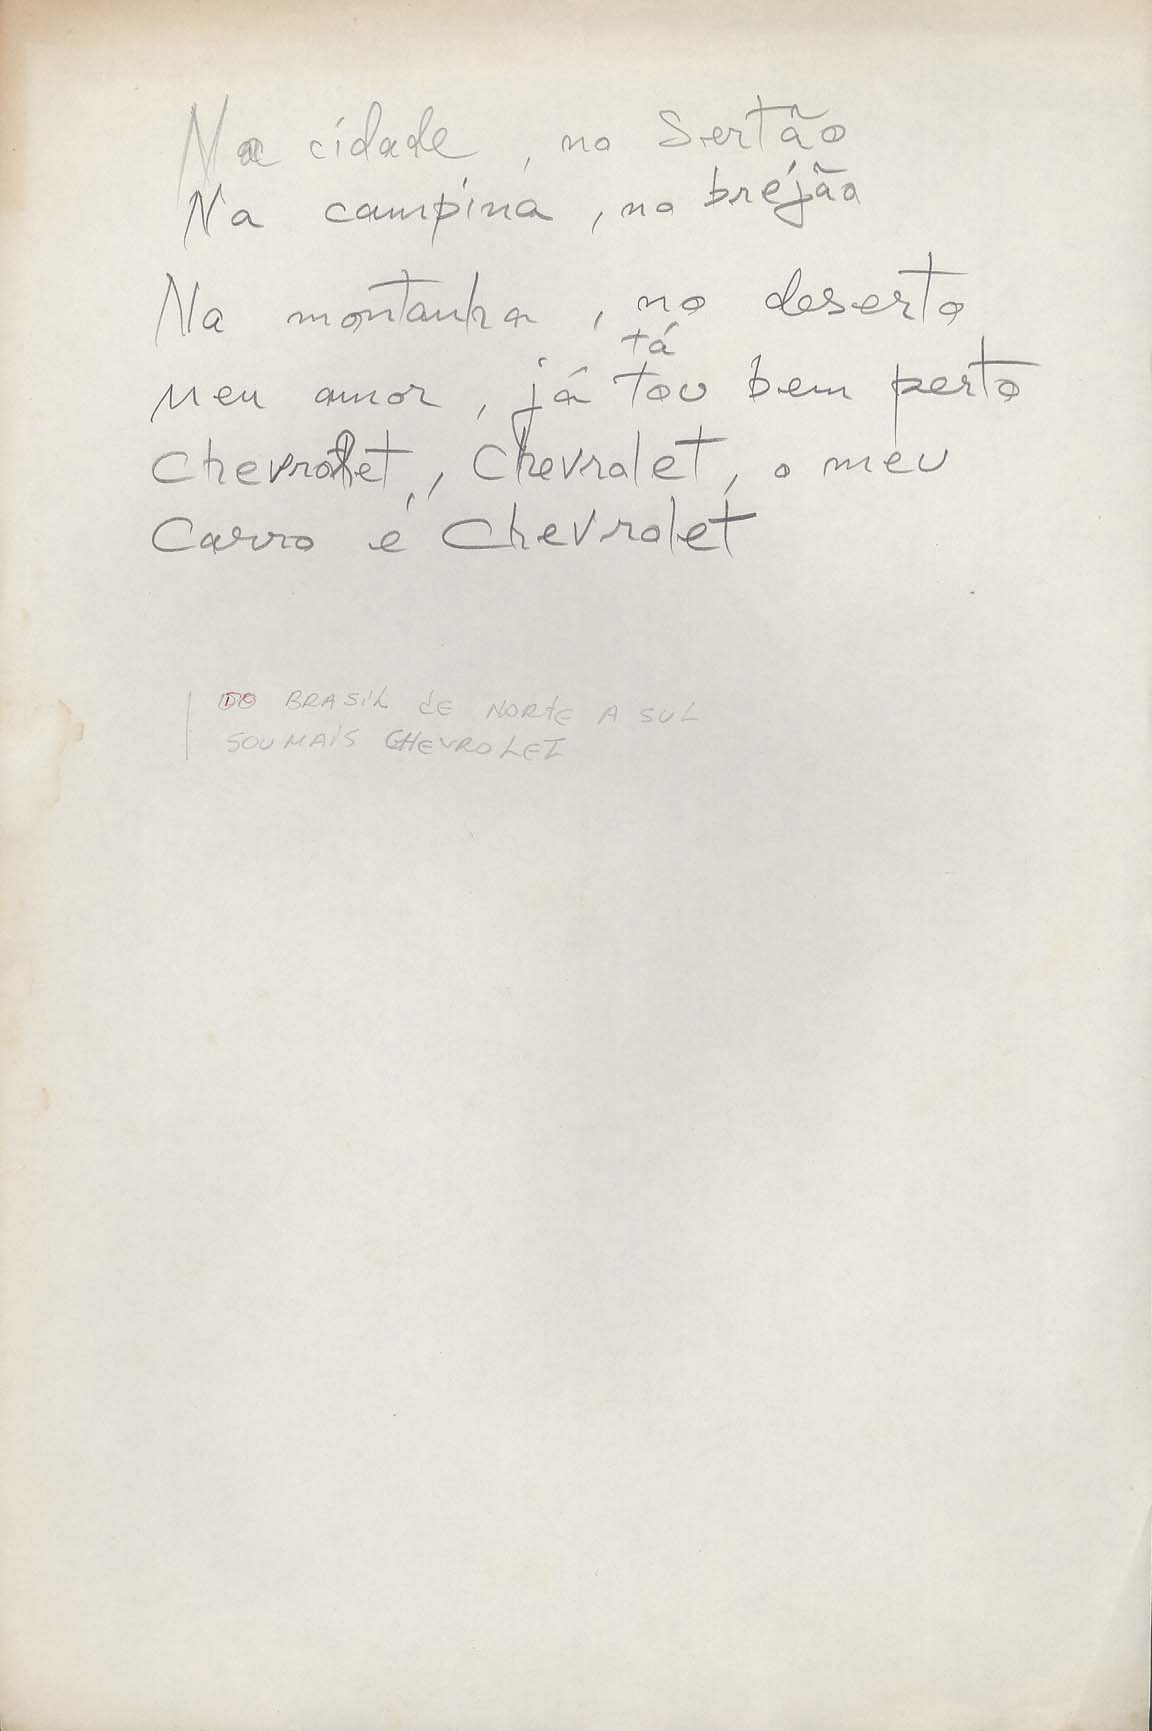 Na cidade, no Sertão
Na campina, no brejão
Na montanha, no deserto
tá
meu amor, já tou bem perto
Chevrolet, Chevrolet, o meu
Carro é Chevrolet
DO BRASIL de NORTE A SUL
SOU MAIS CHEVROLET